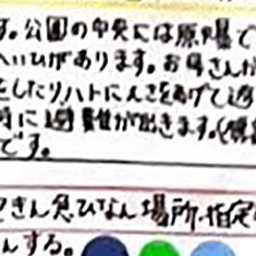 す。公園の中央には原爆で
へいひがあります。お母さんが
をしたりハトにえさをあげて過
時に避難が出きます。(原
です。
きん急ひなん場所・指定
んする。